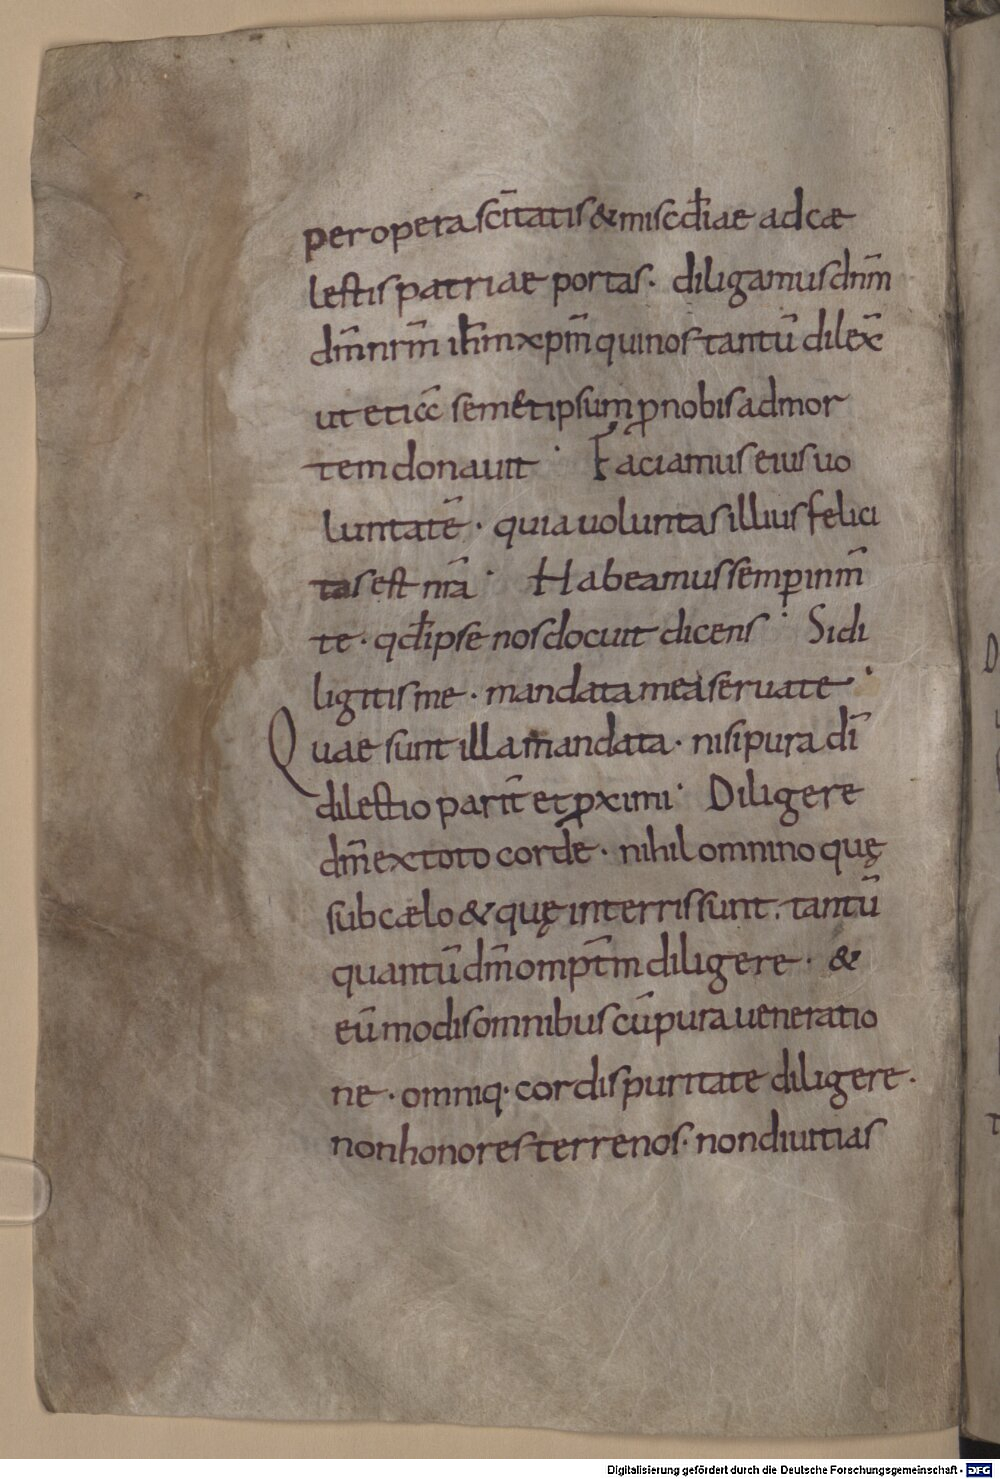 per opera sc̄itatis & miscd̄iae ad cæ
lestis patriae portas · diligamus dnm̄
dm̄ nrm̄ ih̄m xpm̄ qui nos tantū dilex̄
ut etic̄c semetipsum ꝓ nobis ad mor
tem donauit · Faciamus eius uo
luntatē · quia uoluntas illius felici
tas est nr̄a · Habeamus semꝑ in m̄
te · qd̄ ipse nos docuit dicens · Si di
ligitis me · mandata mea seruate ·
Quae sunt illa mandata · nisi pura dī
dilectio parit̄ et ꝓximi · Diligere
dm̄ ex toto corde · nihil omnino quę
sub cælo & quę in terris sunt · tantū
quantū dm̄ omp̄tm diligere · &
eū modis omnibus cū pura ueneratio
ne · omniq· cordis puritate diligere ·
non honores terrenos · non diuitias
Digitalisierung gefördert durch die Deutsche Forschungsgemeinschaft - DFG